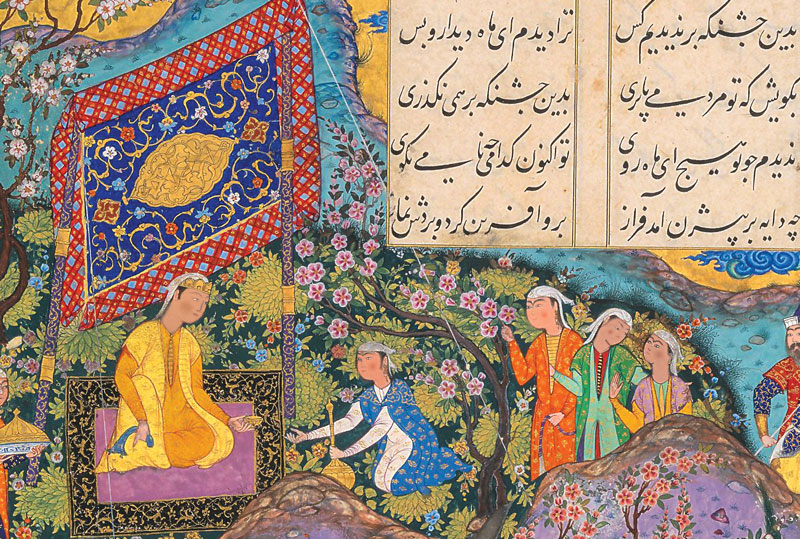 بدین جشنکه بر ندیدیم کس ترا دیدم ای ماه دیدار و بس
بکویش که تو مردمی یا پری بدین جشنکه بر همی بگذری
ندیدم چو تو هیچ ای ماه روی تو اکنون کدامی چه نامی بکوی
چه دایه بر بیژن آمد فراز برو آفرین کرد و بردش نماز